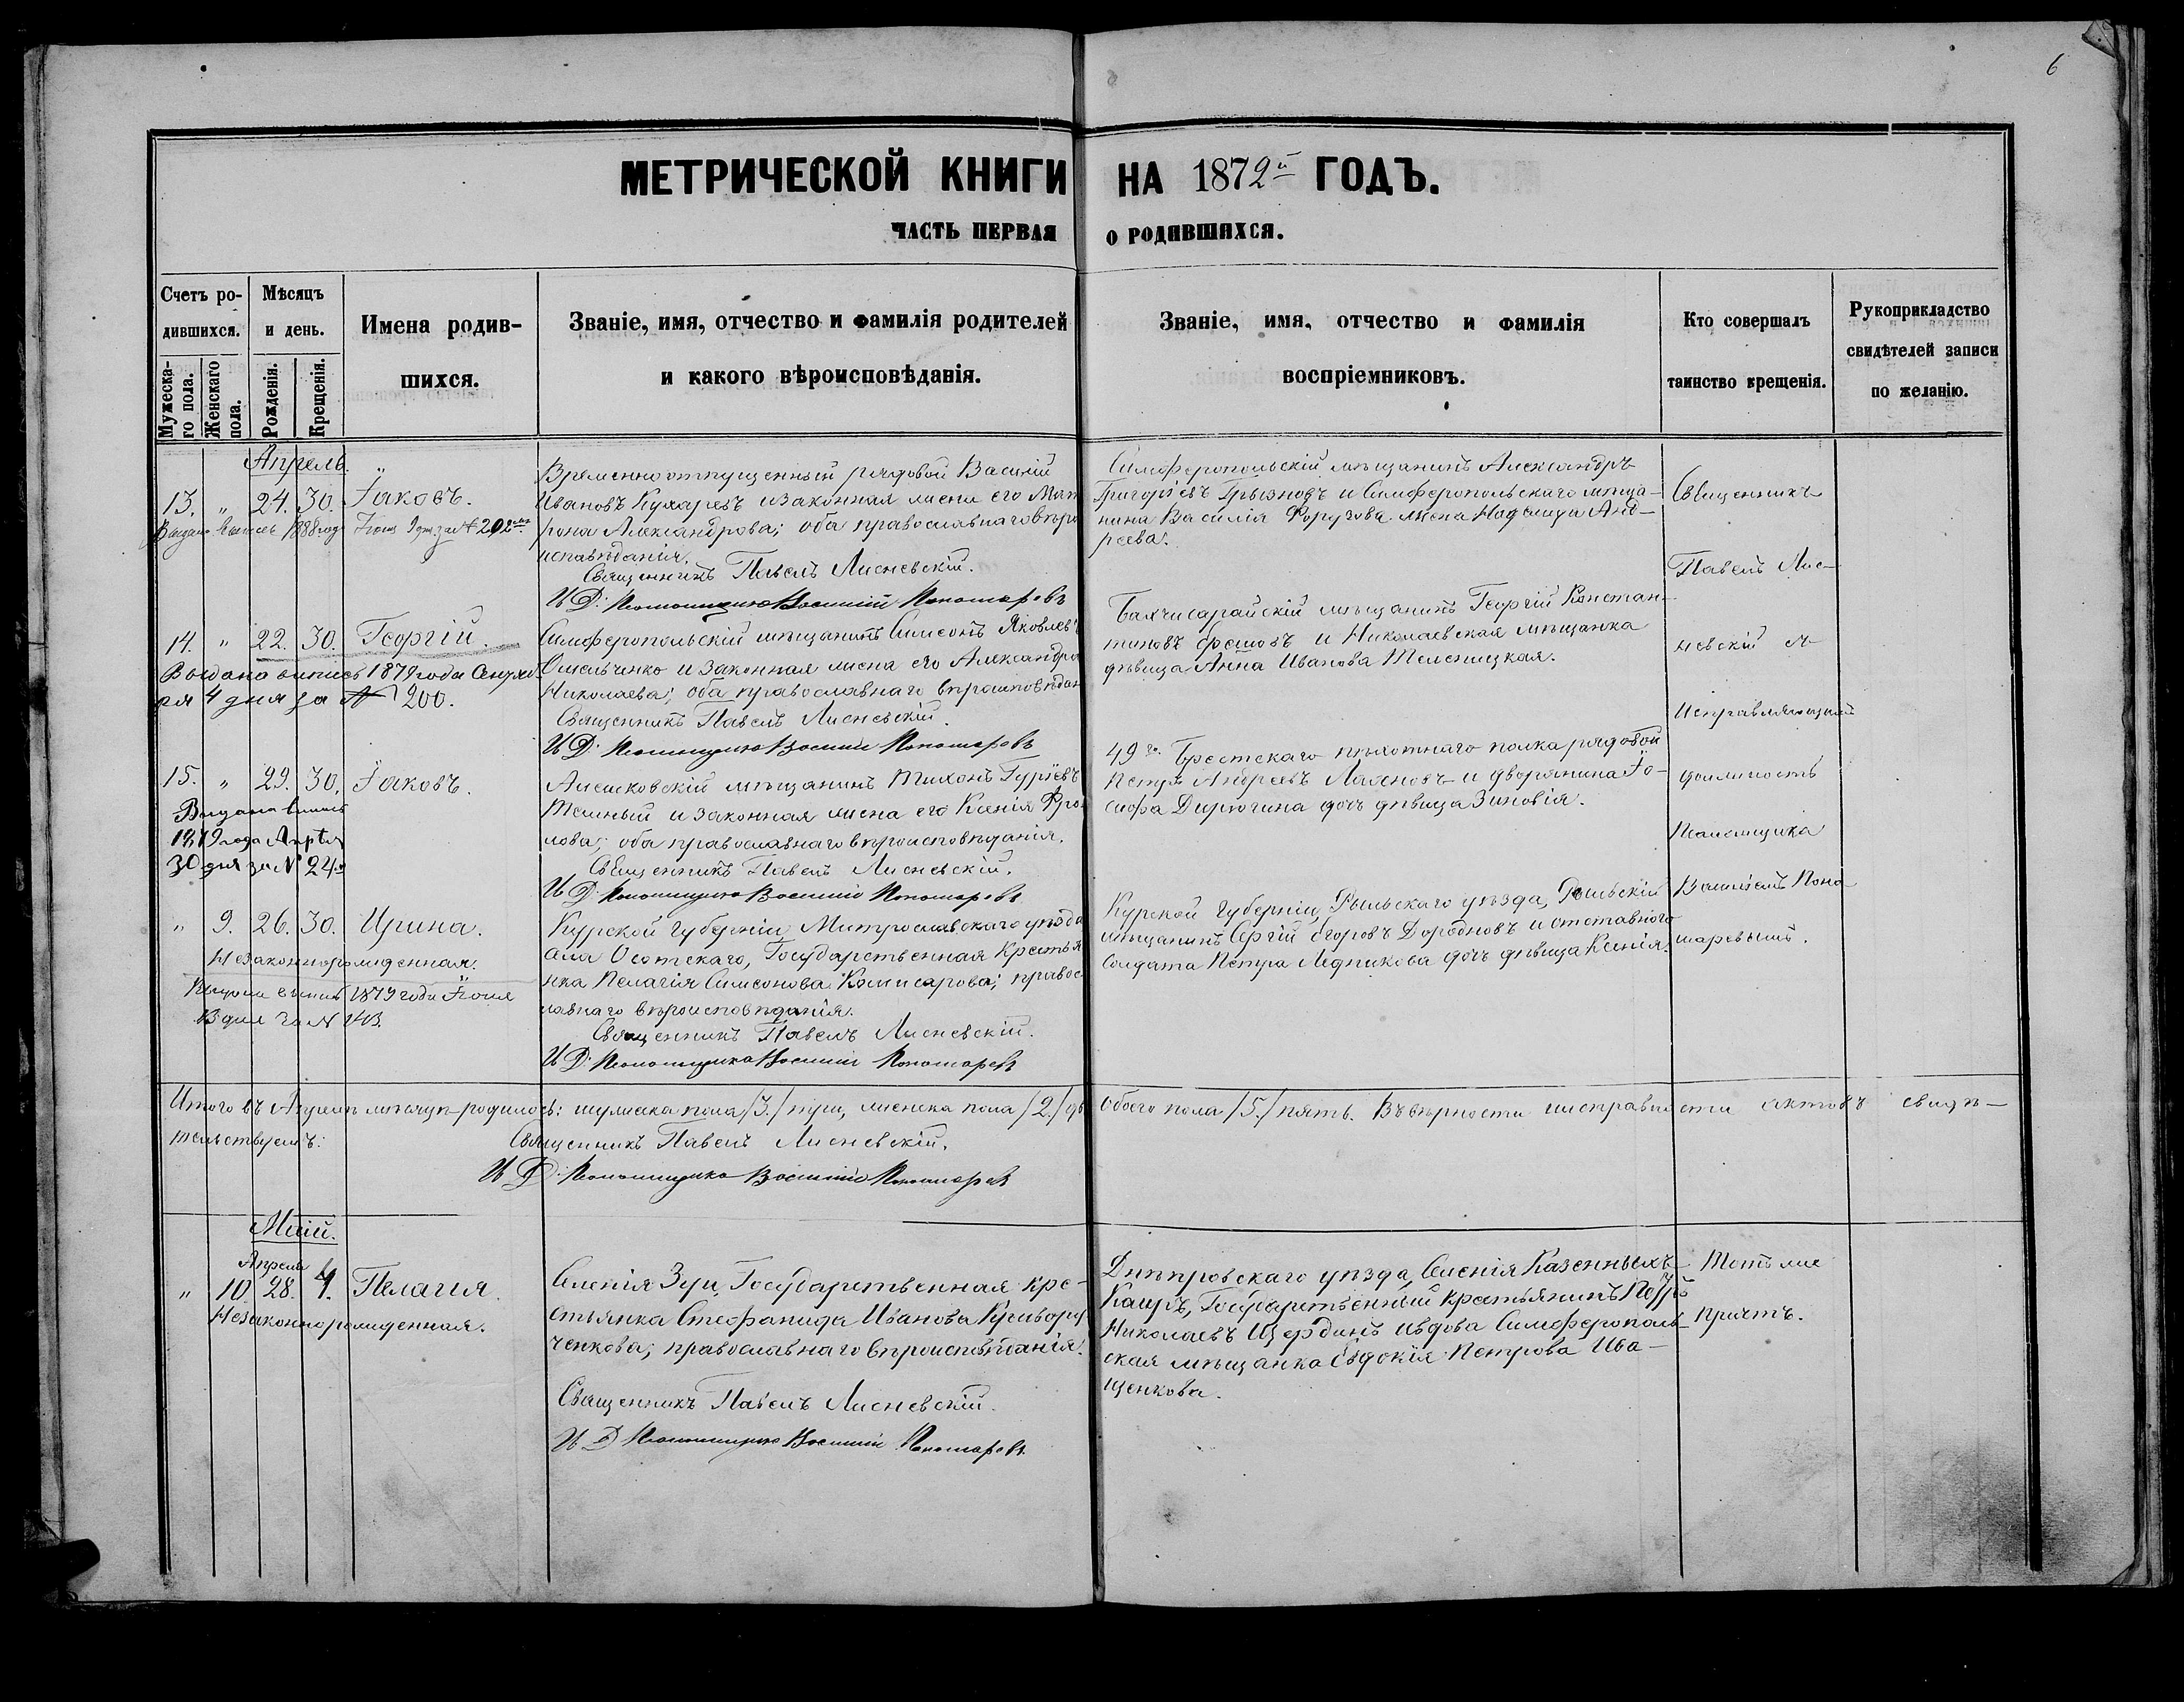 6
МЕТРИЧЕСКОЙ КНИГИ НА 1872й ГОДЪ.
ЧАСТЬ ПЕРВАЯ О РОДИВШИХСЯ.
Счетъ ро-
дившихся.
Мужеска-
го пола.
Женскаго
пола.
Мѣсяцъ
и день.
Рожденія.
Крещенія.
Имена родив-
шихся.
Званіе, имя, отчество и фамилія родителей
и какого вѣроисповѣданія.
Званіе, имя, отчество и фамилія
воспріемниковъ.
Кто совершалъ
таинство крещенія.
Рукоприкладство
свидѣтелей записи
по желанію.
Апрель.
13. " 24. 30. Іаковъ.
Выдана выпись 1888 году Іюня 9 дн. за № 202
Временноотпущенный рядовой Василій
Ивановъ Кухаревъ и законная жена его Мат
рона Александрова; оба православнаго вѣро
исповѣданія.
Священникъ Павелъ Лисневскій.
И Д: Псаломщика Василій Пономаревъ
Симферопольскій мѣщанинъ Александръ
Григорьевъ Грызновъ и Симферопольскаго мѣща-
нина Василія Форузова жена Надежда Анд-
реева.
14. " 22. 30. Георгій.
Выдана выпись 1879 года Сентяб
ря 4 дня за № 200.
Симферопольскій мѣщанинъ Симеонъ Яковлевъ
Омельченко и законная жена его Александра
Николаева; оба православнаго вѣроисповѣдан
Священникъ Павелъ Лисневскій.
И Д: Псаломщика Василій Пономаревъ
Бахчисарайскій мѣщанинъ Георгій Констан-
тиновъ и Николаевская мѣщанка
дѣвица Анна Иванова Теленицкая.
15. " 29. 30. Іаковъ.
Выдана выпись
1879 года Апрѣля
30 дня за № 24
Алешковскій мѣщанинъ Тихонъ Гурьевъ
Темный и законная жена его Ксенія Фро
лова; оба православнаго вѣроисповѣданія.
Священникъ Павелъ Лисневскій.
И Д: Псаломщика Василій Пономаревъ
49го Брестскаго пѣхотнаго полка рядовой
Петръ Андреевъ Лаяновъ и дворянина Іо-
сифа Дирюгина дочь дѣвица Зиновія.
" 9. 26. 30. Ирина.
Незаконнорожденная.
Выдана выпись 1879 года Іюня
13 дня за №
Курской Губерніи, Митрославскаго уѣзда
села Осотскаго, Государственная Крестья
нка Пелагія Симеонова Комисарова; правос-
лавнаго вѣроисповѣданія.
Священникъ Павелъ Лисневскій.
И Д: Псаломщика Василій Пономаревъ
Курской Губерніи, Рыльскаго уѣзда, Рыльскій
мѣщанинъ Сергій Егоровъ Дородновъ и отставного
Солдата Петра Ледникова дочь дѣвица Ксенія.
Священникъ
Павелъ Лис-
невскій съ
Исправляющимъ
должность
Псаломщика
Василіемъ Поно
маревымъ.
Итого въ Апрелѣ мѣсяцѣ родилось: мужеска пола /3./ три, женска пола /2./ дв обоего пола /5./ пять. Въ вѣрности и исправности актовъ свидѣ-
тельствуемъ:
Священникъ Павелъ Лисневскій.
И Д: Псаломщика Василій Пономаревъ
Маій.
Апреля
" 10. 28. 4. Пелагія.
Незаконнорожденная.
Селенія Зуи, Государственная кре-
стьянка Стефанида Иванова Криворуч
ченкова; православнаго вѣроисповѣданія.
Священникъ Павелъ Лисневскій.
И Д Псаломщика Василій Пономаревъ
Днѣпровскаго уѣзда, Селенія Казенныхъ
Каиръ, Государственный крестьянинъ Петръ
Николаевъ Щердинъ и вдова Симферополь-
ская мѣщанка Евдокія Петрова Ива-
щенкова.
Тотъ же
причтъ.